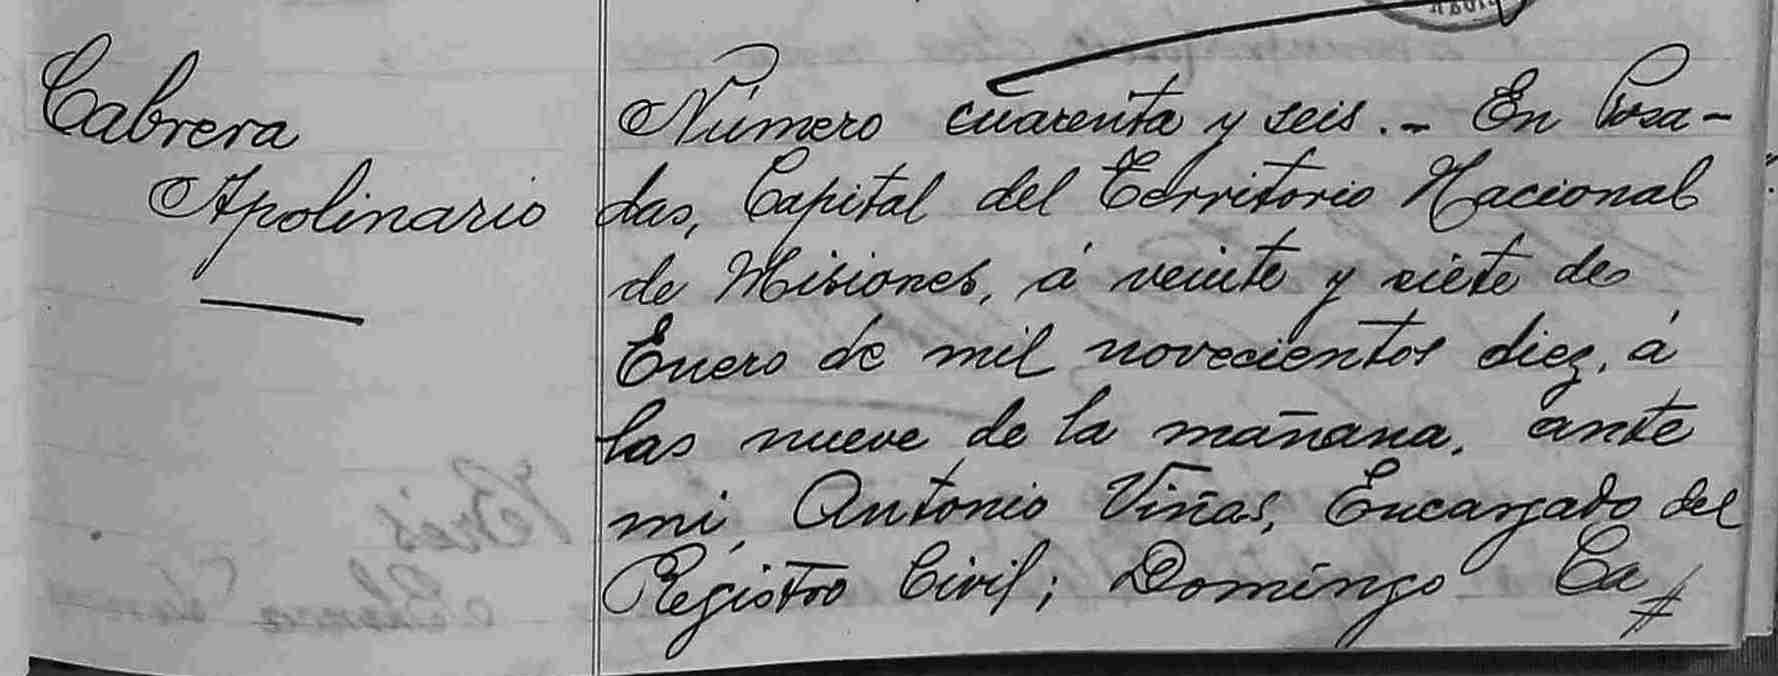 Cabrera
Apolinario
Número cuarenta y seis. - En Posa-
das, Capital del Territorio Nacional
de Misiones, á veinte y siete de
Enero de mil novecientos diez, á
las nueve de la mañana, ante
mi, Antonio Viñas, Encargado del
Registro Civil; Domingo Ca